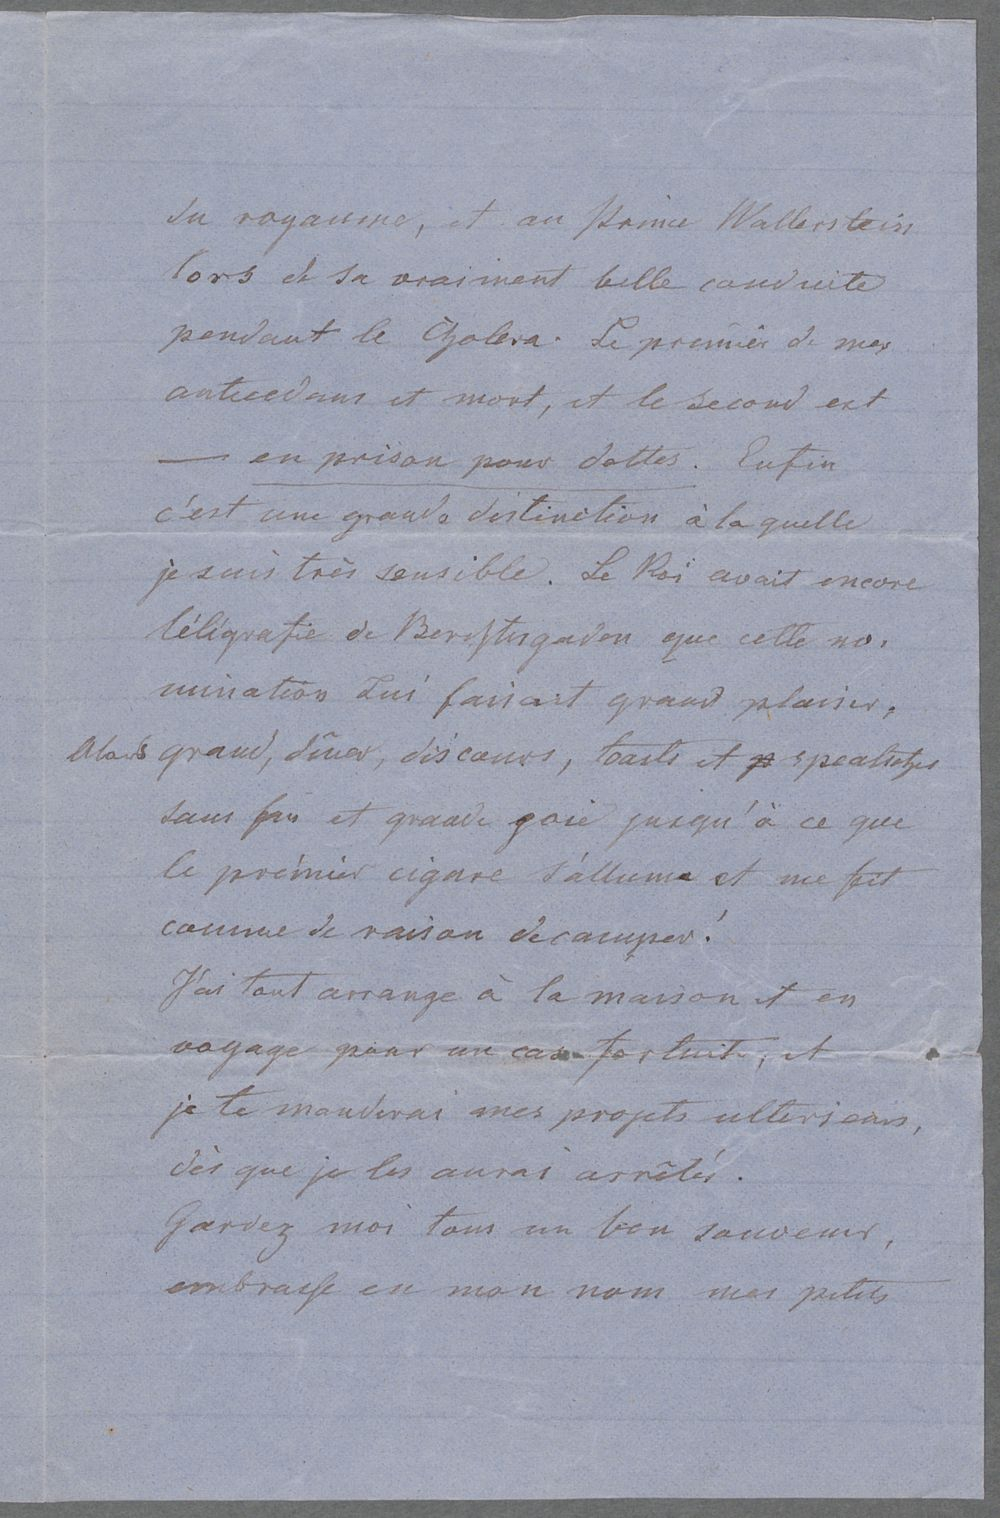 du royaume, et au prince Wallerstein
lors de sa vraiment belle conduite
pendant le Cholera. Le premier de mes
antecedans et mort, et le second est
— en prison pour dettes. Enfin
c'est une grande distinction à la quelle
je suis très sensible. Le Roi avait encore
téligrafié de Berchtesgaden que cette no-
mination Lui faisait grand plaisir.
Alors grand, dîner, discours, toasts et
sans fin et grande goie jusqu'à ce que
le prémier cigare s'allume et me fit
comme de raison decamper!
J'ai tout arrange à la maison et en
voyage pour un cas fortuit, et
je te manderai mes projets ulterieurs,
dès que je les aurai arrêtés.
Gardez moi tous un bon souvenir,
embrasse en mon nom mes petits